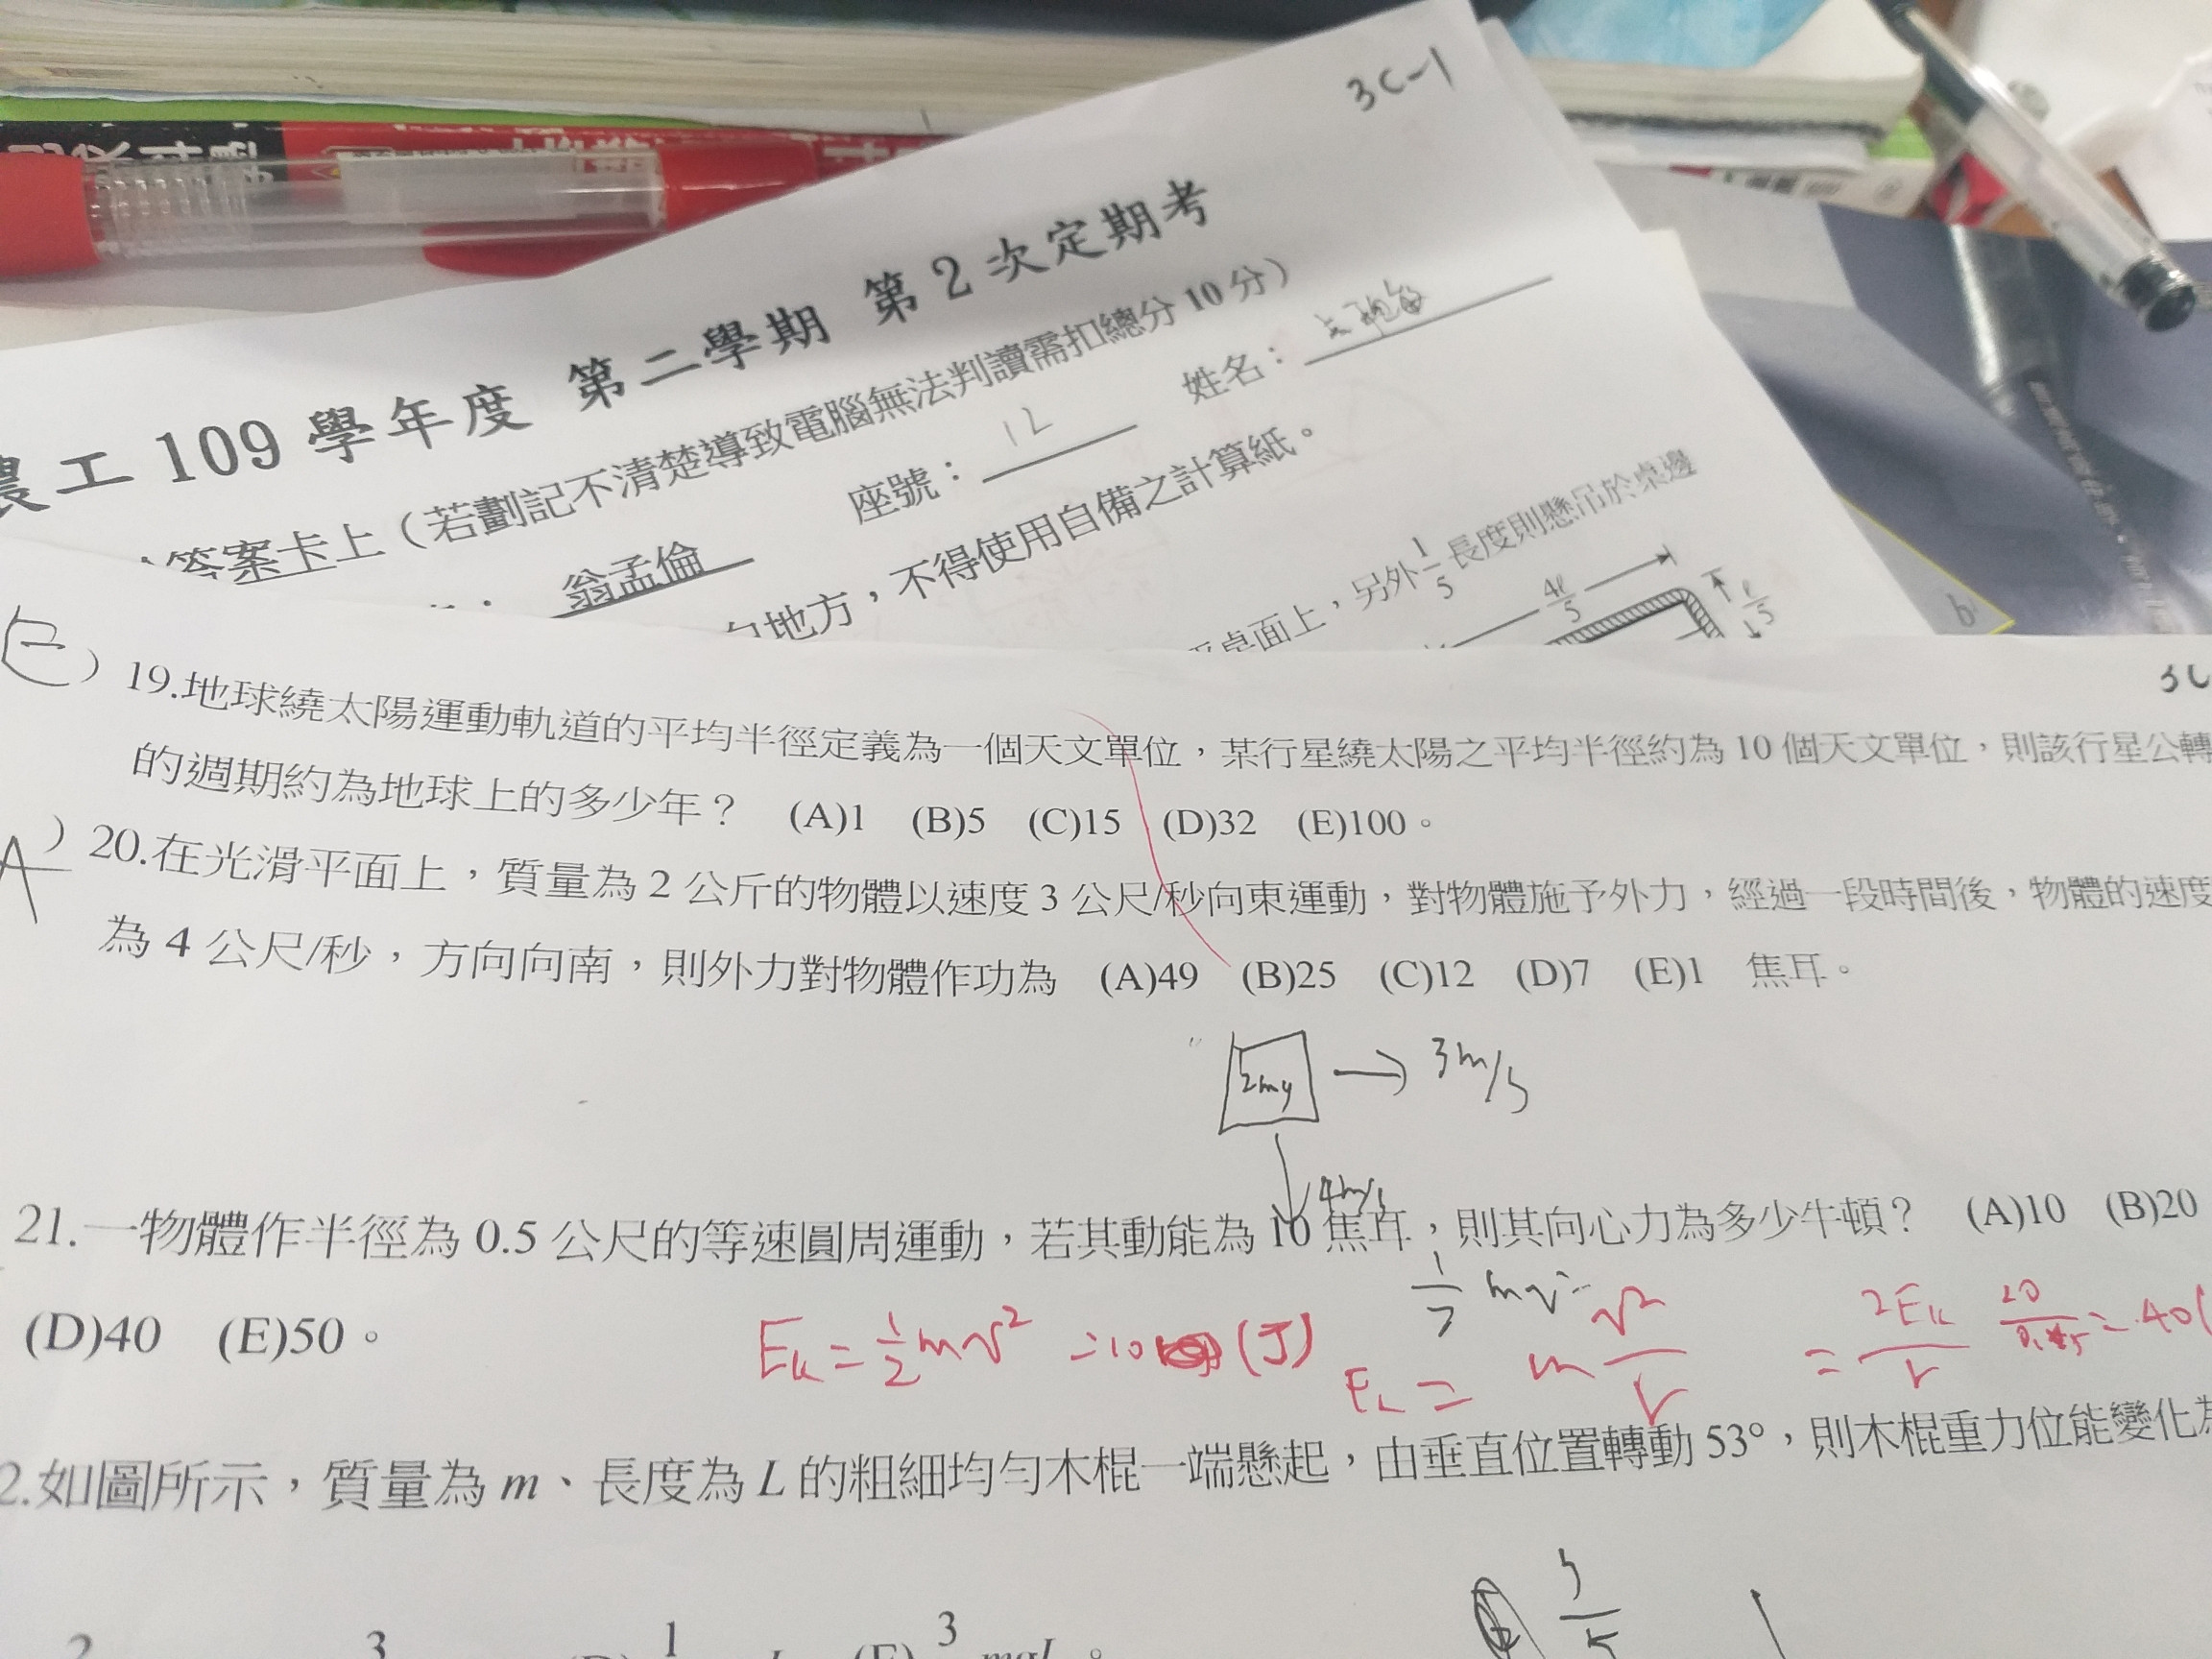 3C-1
農工 109 學年度 第二學期 第 2 次定期考
答案卡上（若劃記不清楚導致電腦無法判讀需扣總分 10 分）
翁孟倫 座號： 12 姓名：
地方，不得使用自備之計算紙。
桌面上，另外 1/5 長度則懸吊於桌邊
4ℓ/5
ℓ/5
3C
E ) 19.地球繞太陽運動軌道的平均半徑定義為一個天文單位，某行星繞太陽之平均半徑約為 10 個天文單位，則該行星公轉
的週期約為地球上的多少年？ (A)1 (B)5 (C)15 (D)32 (E)100。
A ) 20.在光滑平面上，質量為 2 公斤的物體以速度 3 公尺/秒向東運動，對物體施予外力，經過一段時間後，物體的速度
為 4 公尺/秒，方向向南，則外力對物體作功為 (A)49 (B)25 (C)12 (D)7 (E)1 焦耳。
3m/s
4m/s
21.一物體作半徑為 0.5 公尺的等速圓周運動，若其動能為 10 焦耳，則其向心力為多少牛頓？ (A)10 (B)20
(D)40 (E)50。
1/2 mv
Ek = 1/2 mv² = 10 (J)
m v²/r = 2Ek/r
= 40
2.如圖所示，質量為 m、長度為 L 的粗細均勻木棍一端懸起，由垂直位置轉動 53°，則木棍重力位能變化為
3/5
2 3 1 (E) 3 mgL。